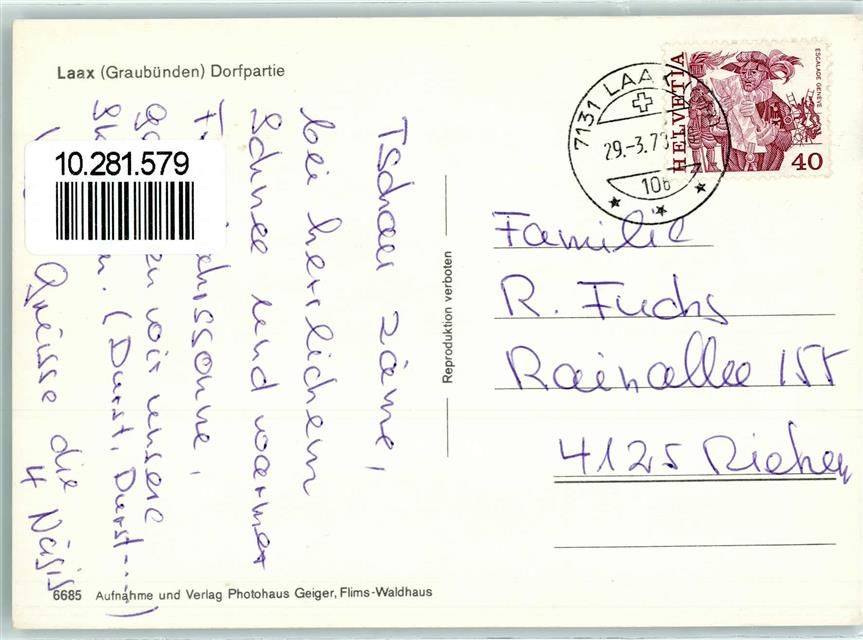 Laax (Graubünden) Dorfpartie
10.281.579
Tschau zäme,
bei herrlichem
Schnee und warmer
sonne,
wir unsere
(Durst, Durst...)
Grüsse die
4 Näsis
Reproduktion verboten
7131 LAA
29.-3.7
HELVETIA
ESCALADE GENÈVE
40
Familie
R. Fuchs
Rainallee 155
4125 Riehen
6685 Aufnahme und Verlag Photohaus Geiger, Flims-Waldhaus